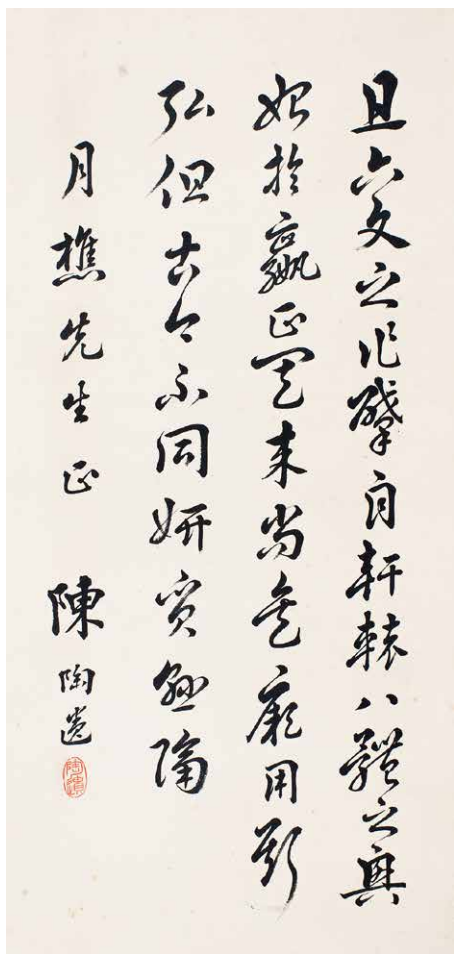 且六文之作肇自軒轅八體之興
始於嬴正其来尚矣厥用斯
弘但古今不同妍質懸隔
月樵先生正 陳陶遺
陶遺